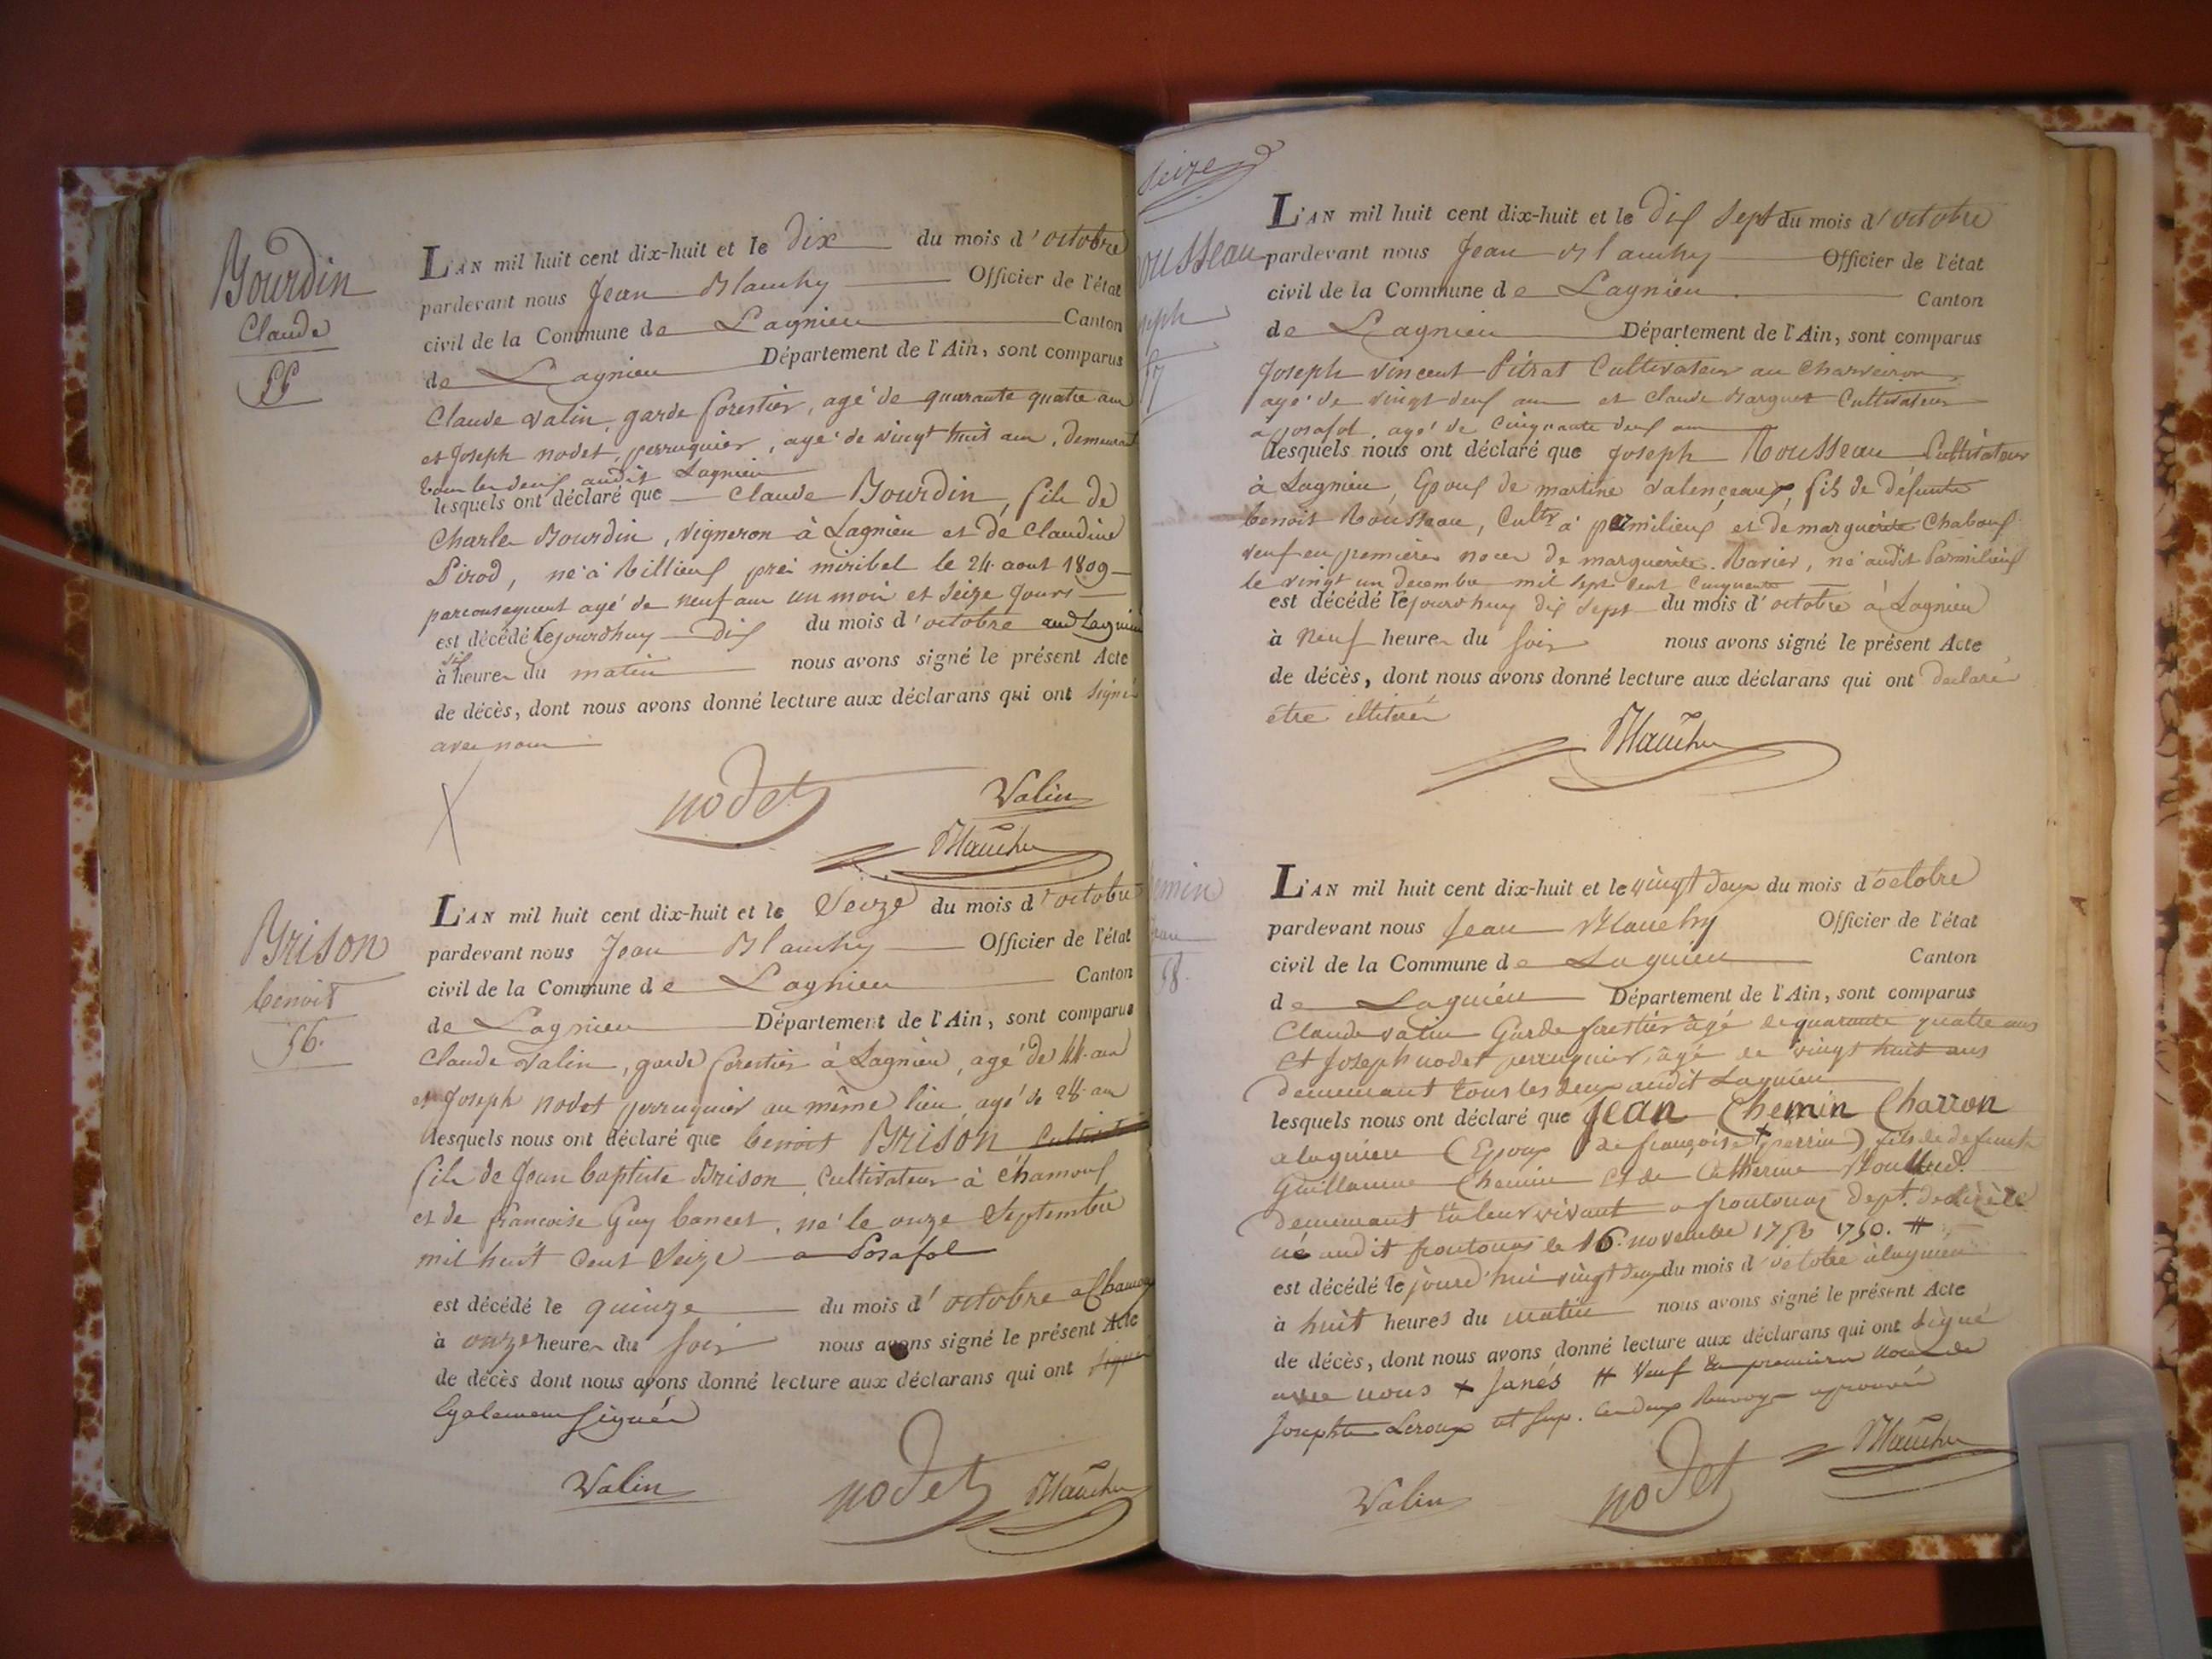 Bourdin
Claude
55
L'AN mil huit cent dix-huit et le dix du mois d'octobre
pardevant nous Jean Blanchy Officier de l'état
civil de la Commune de Lagnieu Canton
de Lagnieu Département de l'Ain, sont comparus
Claude Valin, garde forestier, agé de quarante quatre ans
et Joseph nodet, perruquier, agé de vingt huit ans, demeurant
tous les deux audit Lagnieu
lesquels ont déclaré que Claude Bourdin, fils de
Charles Bourdin, vigneron à Lagnieu et de Claudine
Pirod, né à Rillieux près miribel le 24 aout 1809
parconsequent agé de neuf ans un mois et seize jours
est décédé le jourdhuy dix du mois d'octobre aud Lagnieu
six
à heures du matin nous avons signé le présent Acte
de décès, dont nous avons donné lecture aux déclarans qui ont signé
avec nous
nodet Valin
Blanchy
Brison
benoit
56.
L'AN mil huit cent dix-huit et le Seize du mois d'octobre
pardevant nous Jean Blanchy Officier de l'état
civil de la Commune de Lagnieu Canton
de Lagnieu Département de l'Ain, sont comparus
Claude Valin, garde forestier à Lagnieu, agé de 44 ans
et Joseph nodet perruquier au même lieu agé de 28 ans
lesquels nous ont déclaré que benoit Brison
fils de Jean baptiste Brison Cultivateur à Chamoux
et de francoise Guy, né le onze Septembre
mil huit Cent Seize a Posafol
est décédé le quinze du mois d'octobre a Chamoux
à onze heures du soir nous avons signé le présent Acte
de décès dont nous avons donné lecture aux déclarans qui ont signé
Egalement signés
Valin nodet Blanchy
Seize
ousseau
seph
57
L'AN mil huit cent dix-huit et le dix Sept du mois d'octobre
pardevant nous Jean Blanchy Officier de l'état
civil de la Commune de Lagnieu Canton
de Lagnieu Département de l'Ain, sont comparus
Joseph Vincent Pitrat Cultivateur au Charveiron,
agé de vingt deux ans et Claude Barquet Cultivateur
a posafol, agé de Cinquante deux ans
lesquels nous ont déclaré que Joseph Rousseau Cultivateur
à Lagnieu, Epoux de martine Valençeaux, fils de défunts
benoit Rousseau, Cultr à parmilieux, et de marguerite Chaboux
veuf en premières noces de marguerite Ravier, né audit Parmilieux
le vingt un decembre mil sept Cent Cinquante
est décédé le jourdhuy dix sept du mois d'octobre à Lagnieu
à neuf heures du soir nous avons signé le présent Acte
de décès, dont nous avons donné lecture aux déclarans qui ont declaré
être illitérés
Blanchy
emin
ean
58.
L'AN mil huit cent dix-huit et le vingt deux du mois d'octobre
pardevant nous Jean Blanchy Officier de l'état
civil de la Commune de Lagnieu Canton
de Lagnieu Département de l'Ain, sont comparus
Claude valin Garde forestier âgé de quarante quatre ans
et Joseph nodet perruquier, âgé de vingt huit ans
demeurant tous les deux audit Lagnieu
lesquels nous ont déclaré que Jean Chemin Charron
a lagnieu (Epoux de françoise + perrin) fils de defunts
Guillaume Chemin et de Catherine
demeurant de leur vivant a frontonas dept. de Lisère
né audit frontonas le 16 novembre 1750. #
est décédé le jourd'hui vingt deux du mois d'octobre à lagnieu
à huit heures du matin nous avons signé le présent Acte
de décès, dont nous avons donné lecture aux déclarans qui ont signé
avec nous + Janés # Veuf en premieres noces de
Josephte Leroux Les deux Renvoys approuvés
Blanchy
Valin nodet